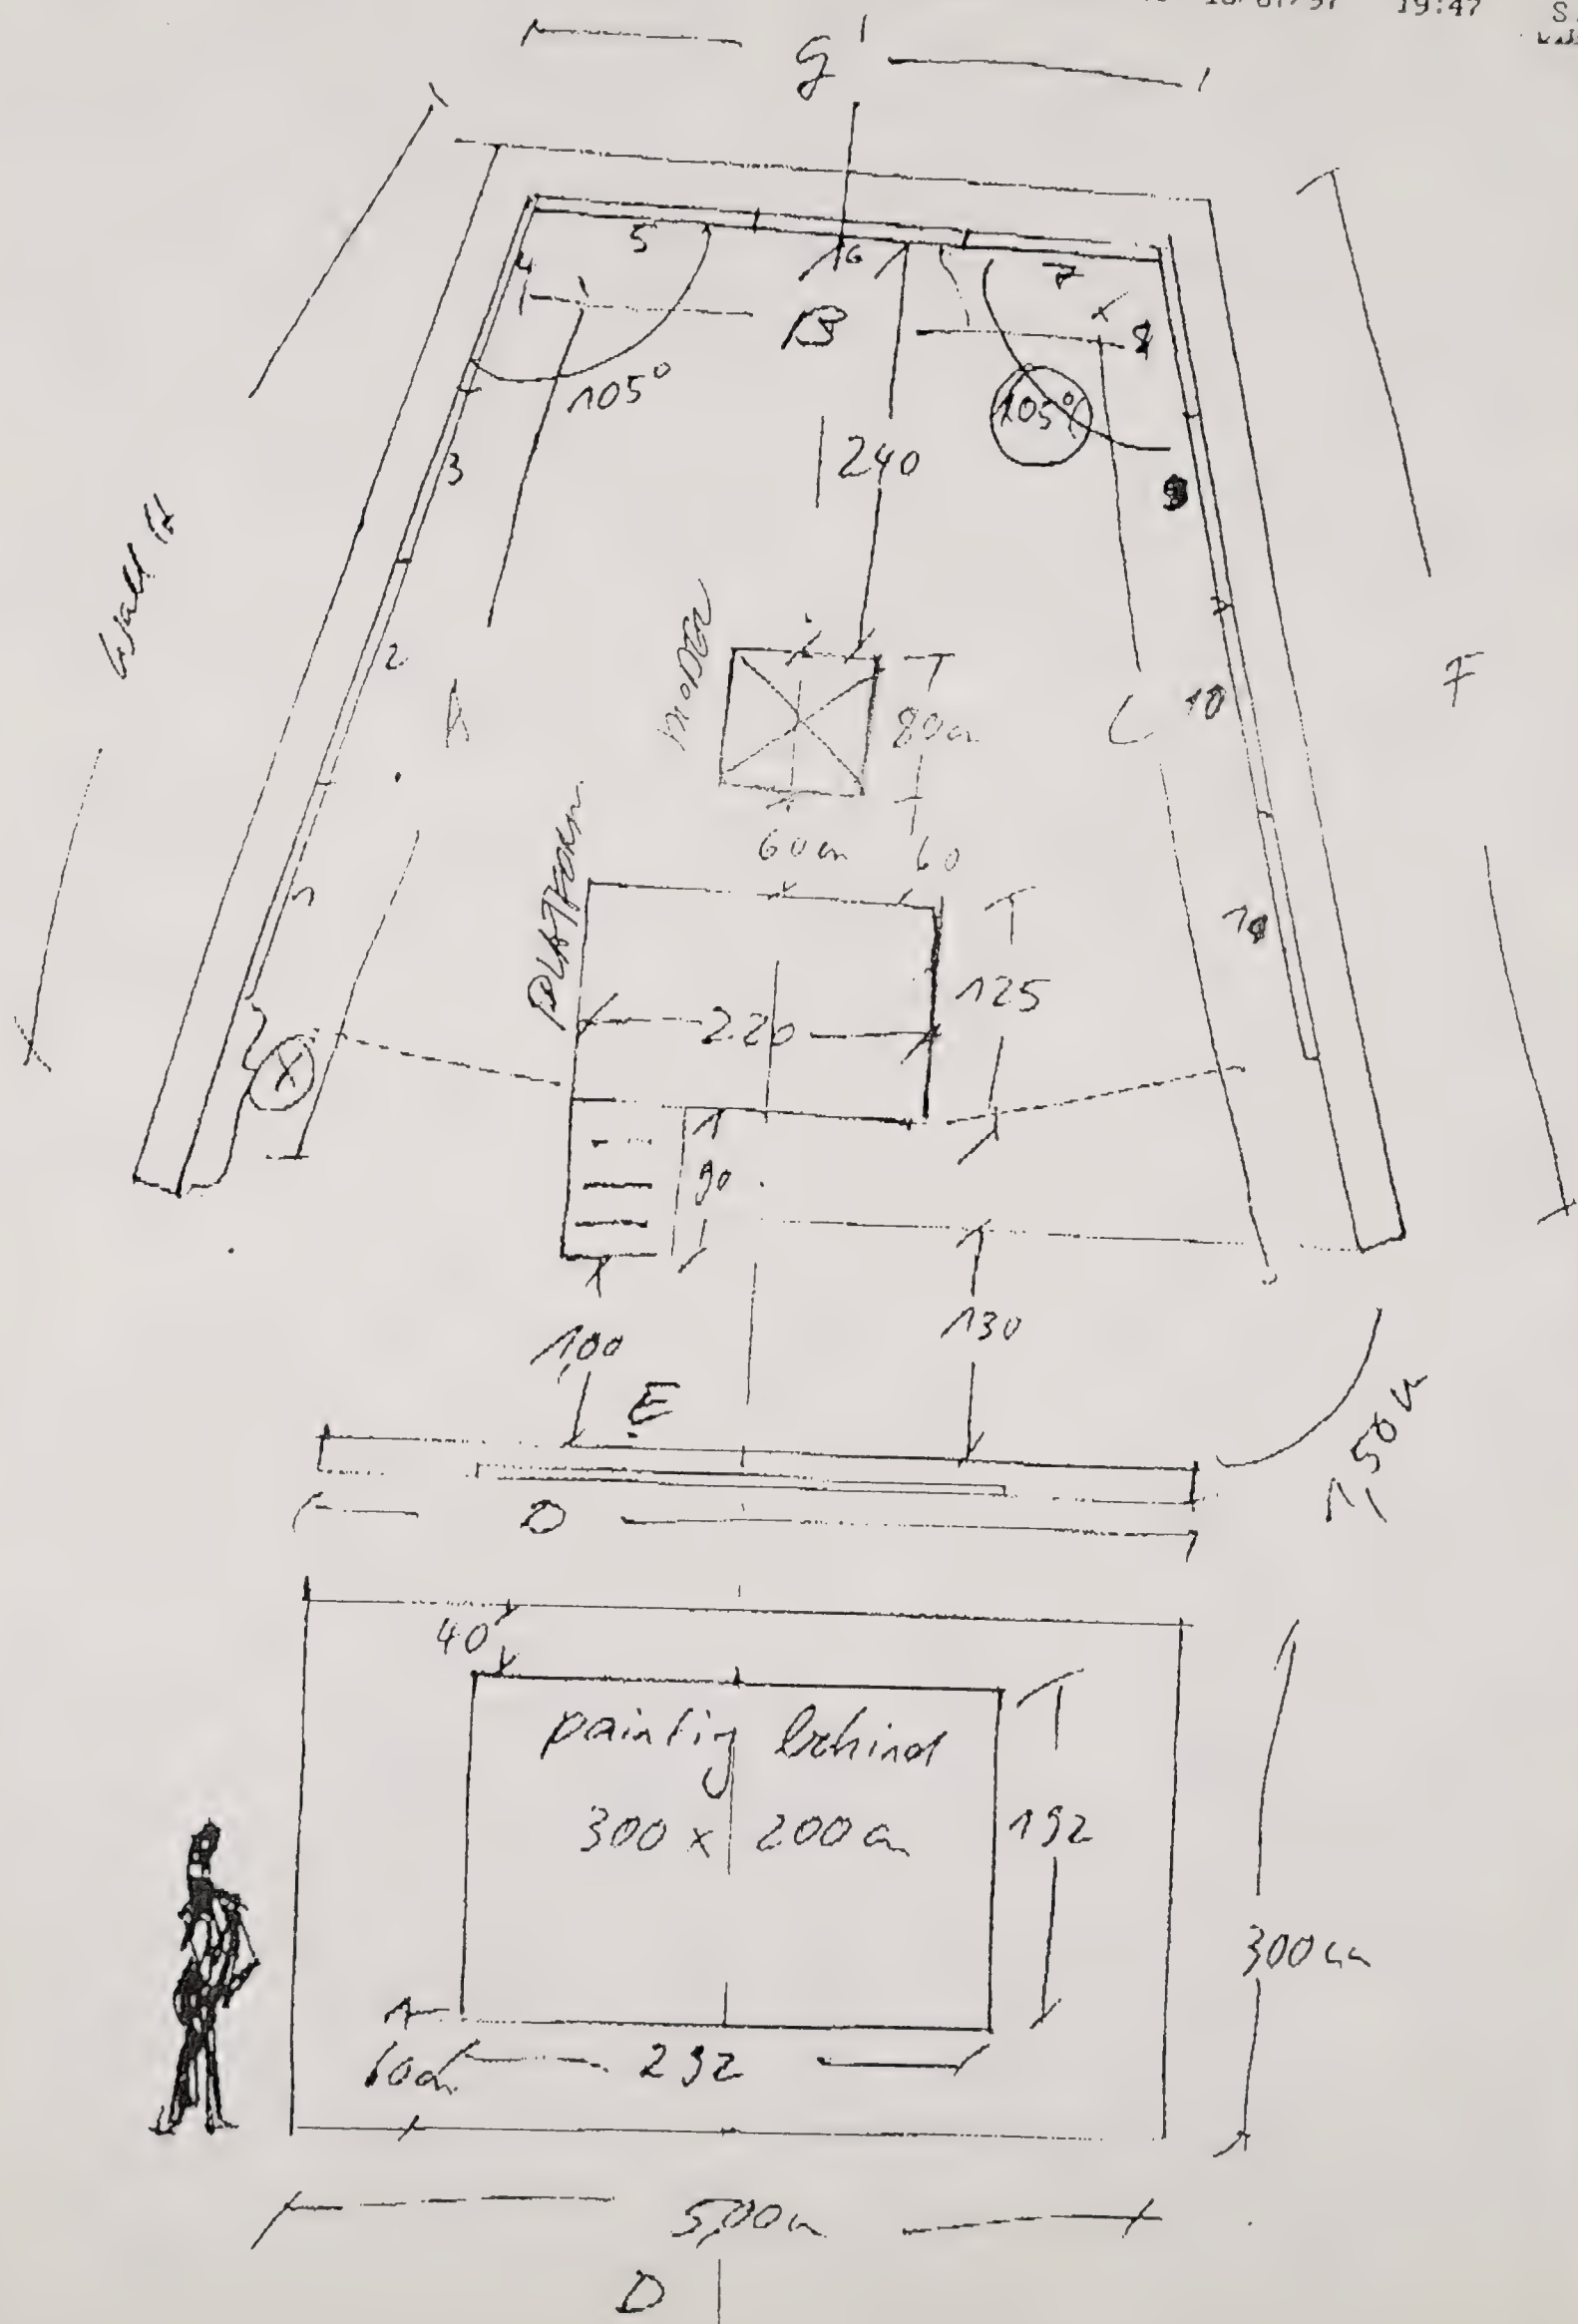 19:47
G
5
6
7
4
B
8
105°
105°
240
3
9
2
A
80cm
C
10
F
60cm
60
1
PLATFORM
125
2.20
90
100
130
E
1,50m
D
40
painting behind
300 x 200 cm
192
300 cm
60cm
292
5,00m
D